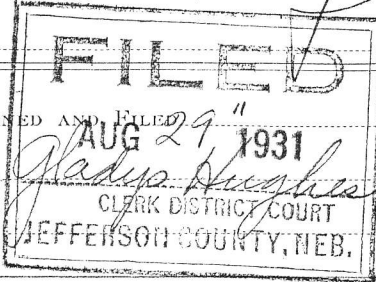 FILED
NED AND FILED
AUG 29" 1931
Gladys Hughes
CLERK DISTRICT COURT
JEFFERSON COUNTY, NEB.